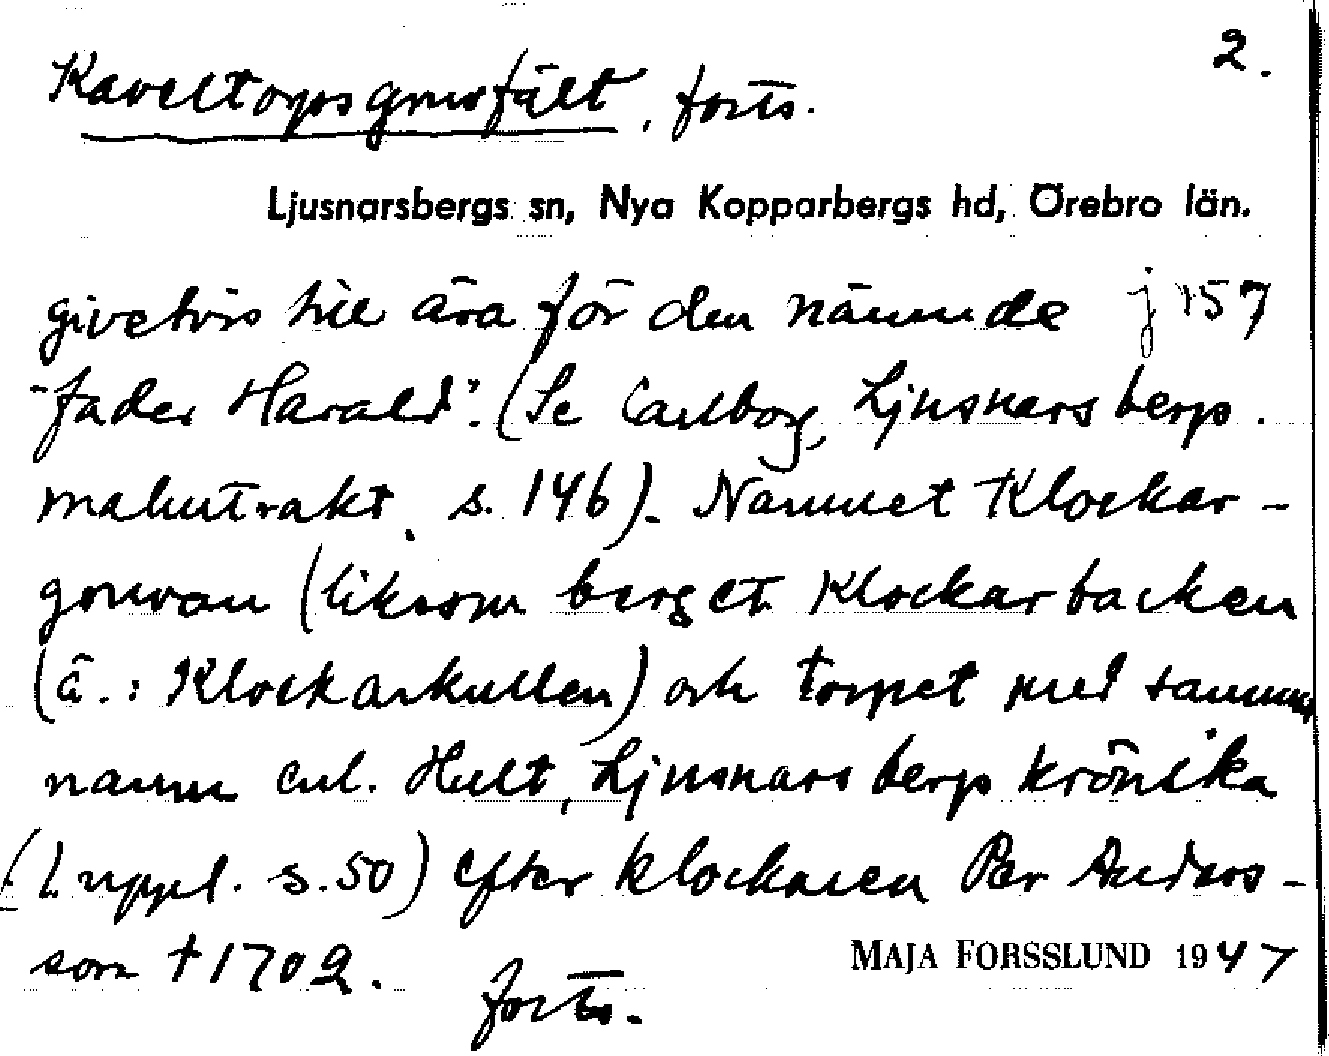 2.
Kaveltorps gruvfält, forts.
Ljusnarsbergs sn, Nya Kopparbergs hd, Örebro län.
givetvis till ära för den nämnde j 157
"fader Harald". (Se Carlborg, Ljusnarsbergs
malmtrakt, s. 146). Namnet Klockar-
gruvan (liksom berget Klockarbacken
(ä.: Klockarkullen) och torpet med samma
namn enl. Hult, Ljusnarsbergs krönika
(1 uppl. s. 50) efter klockaren Per Anders-
son † 1702.
MAJA FORSSLUND 1947
forts.